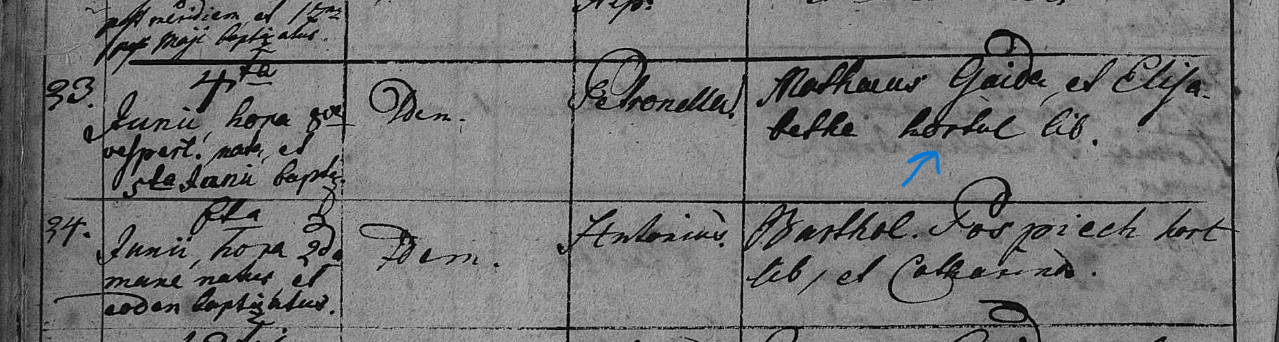 post meridiem, et
Maji baptizatus.
33.
4ta
Junii, hora 8va
vespert. nata, et
5ta Junii baptiz.
Dem.
Petronella.
Mathaeus Gaida, et Elisa-
betha hortul lib.
34.
6ta
Junii, hora 2da
mane natus et
eoden baptizatus.
Dem.
Antonius.
Barthol. Pospiech hort
lib, et Catharina.